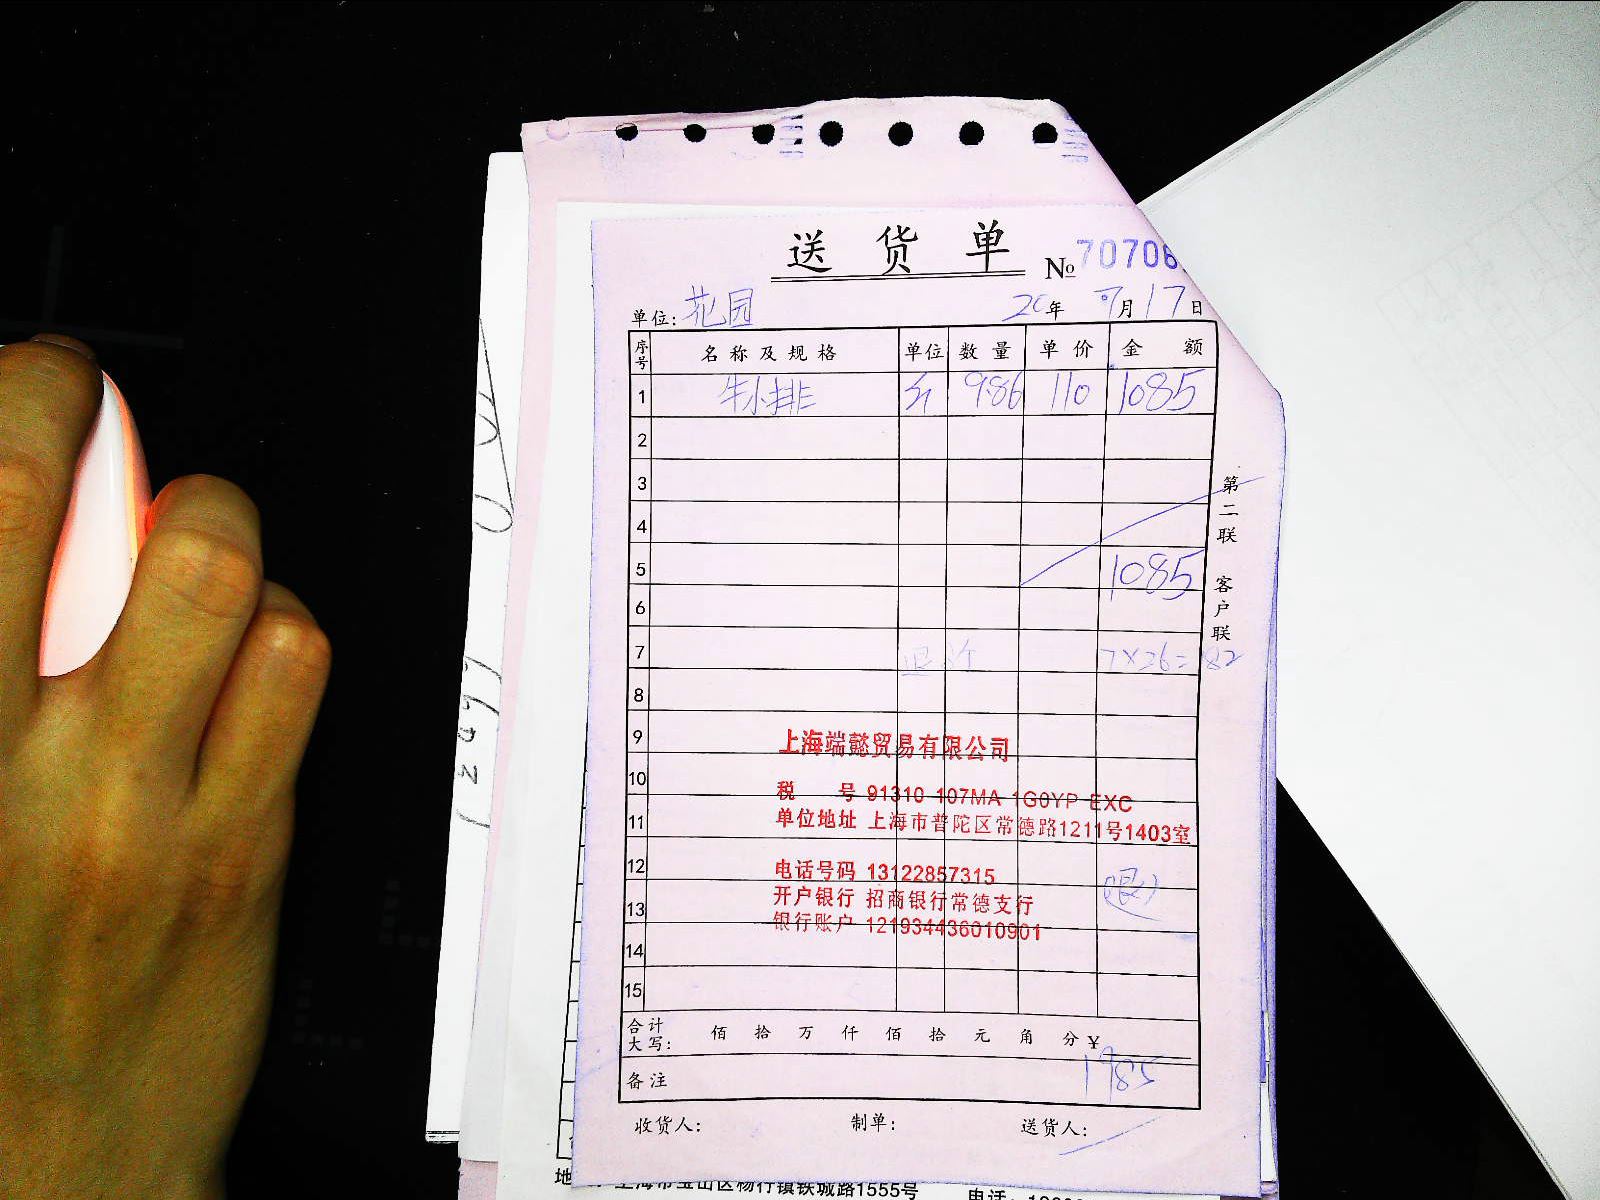 送 货 单
№ 70706
单位: 花园 20年 9月17日
序号 名称及规格 单位 数量 单价 金 额
1 牛小排 斤 9.86 110 1085
2
3
4
5 1085
6
7 7×26=182
8
9
10
11
12
13
14
15
上海端懿贸易有限公司
税 号 91310 107MA 1G0YP EXC
单位地址 上海市普陀区常德路1211号1403室
电话号码 13122857315
开户银行 招商银行常德支行
银行账户 121934436010901
合计大写: 佰 拾 万 仟 佰 拾 元 角 分 ¥
备注
收货人: 制单: 送货人:
第二联 客户联
上海市宝山区杨行镇铁城路1555号
电话: